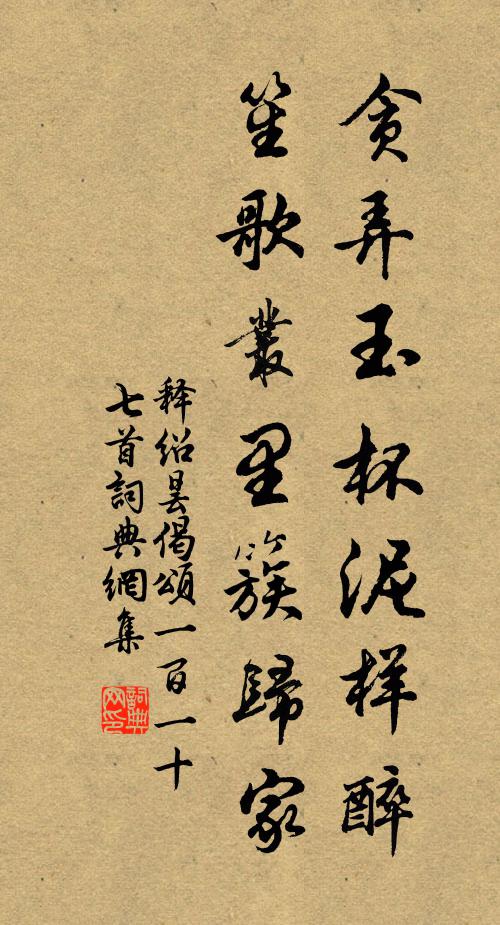 贪弄玉杯泥样醉
笙歌丛里簇歸家
释绍昙偈頌一百一十
七首詞典網集
詞典网印